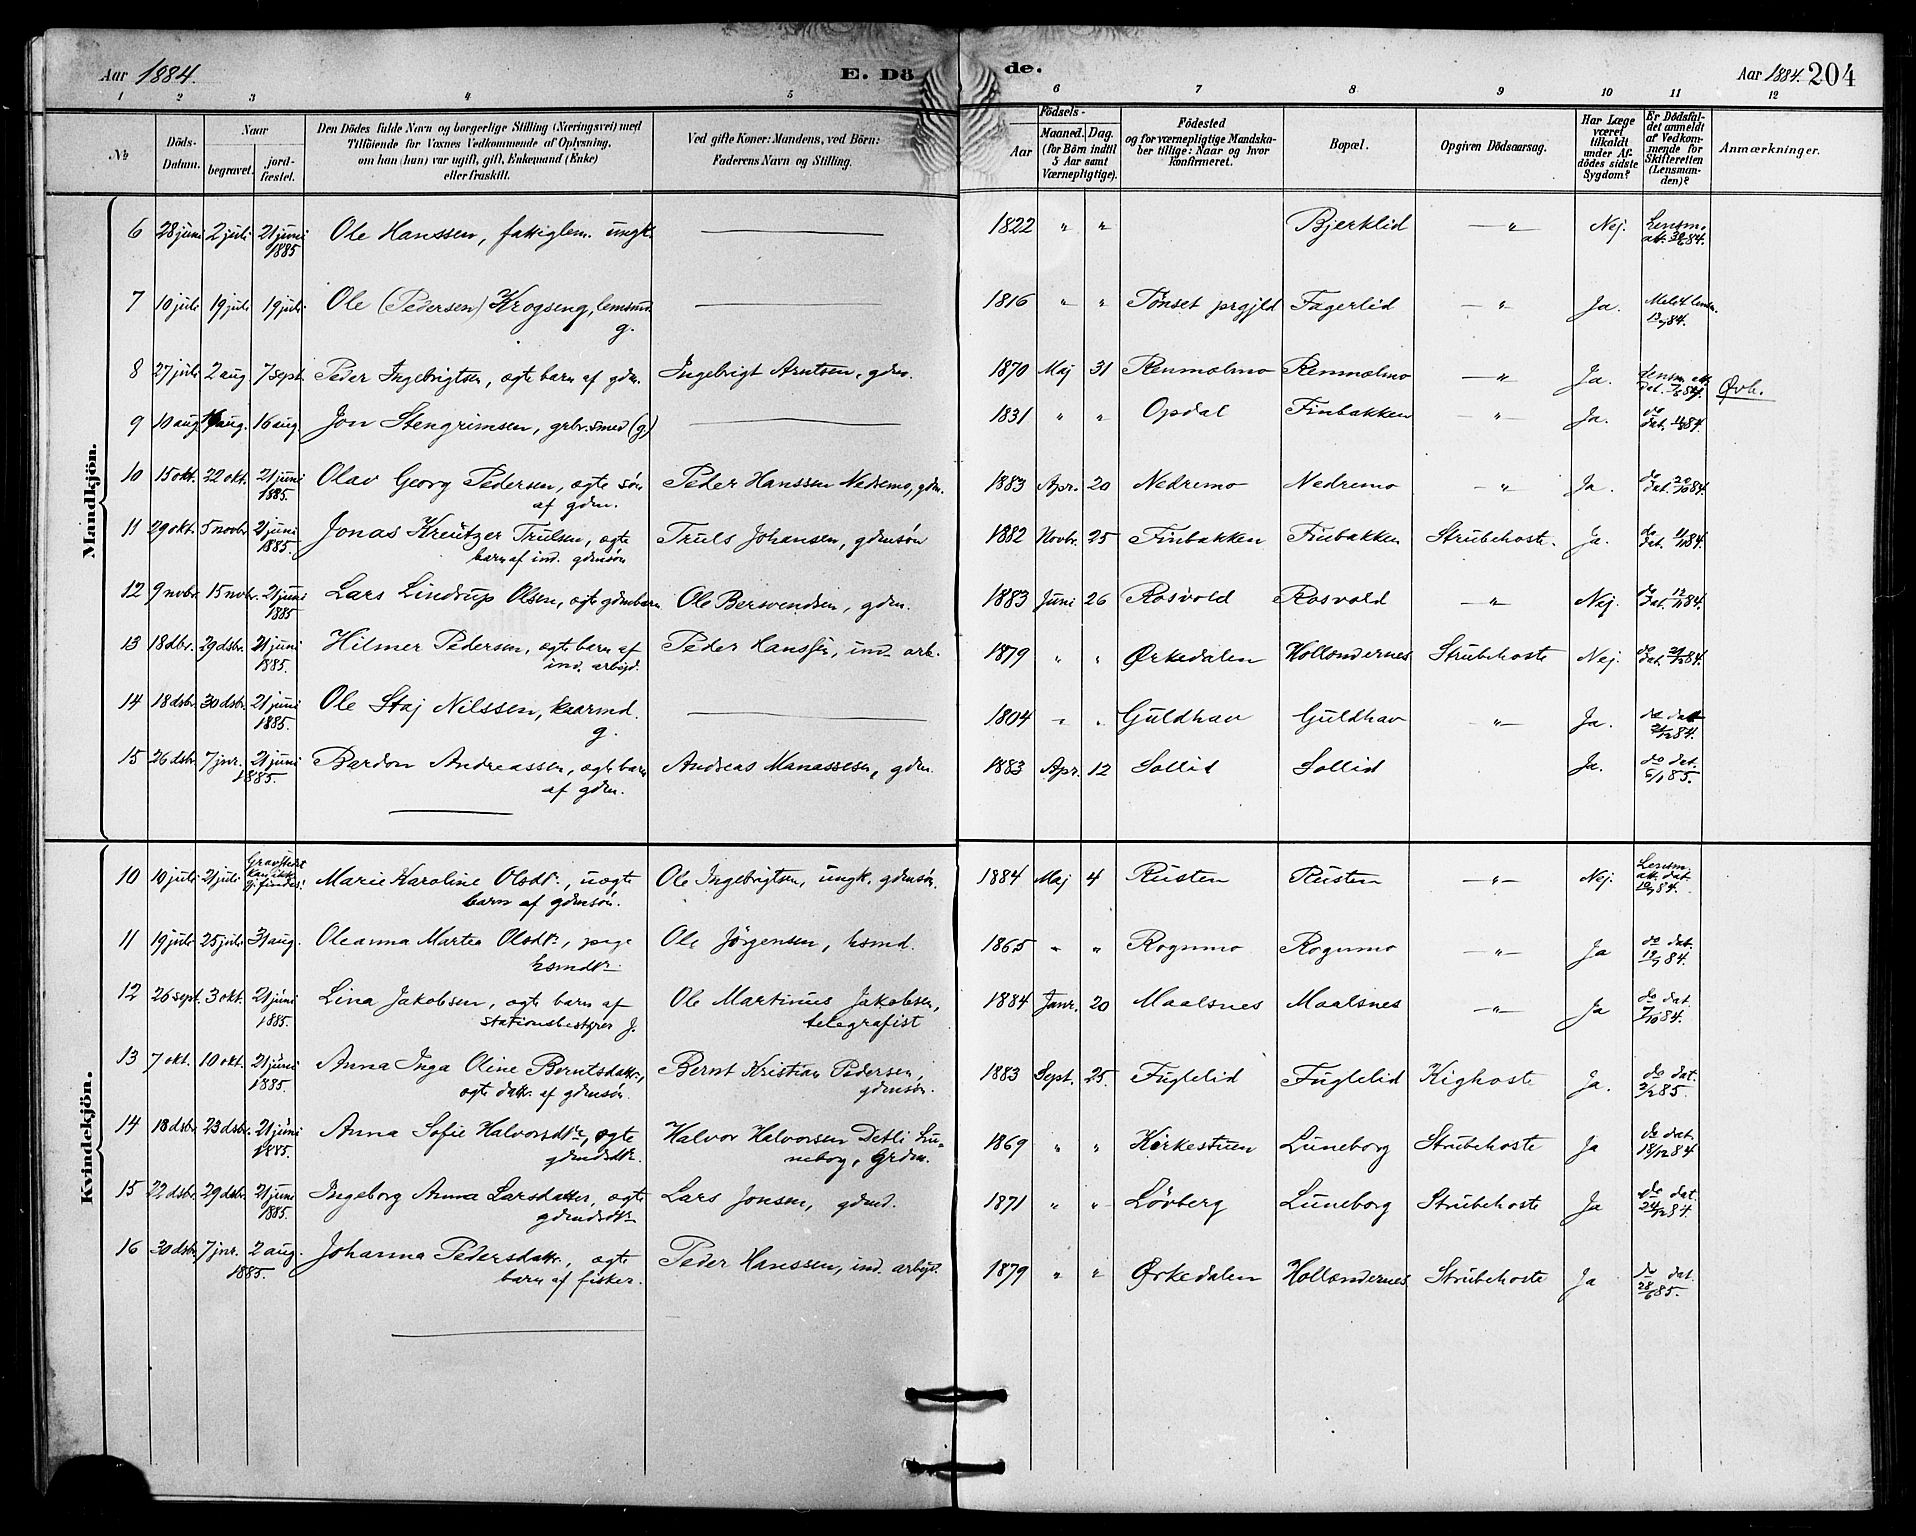 Aar 1884. E. Dö de. Aar 1884. 204
1 2 3 4 5 6 7 8 9 10 11 12
№
Döds-Datum.
Naar
begravet.
jord-fæstet.
Den Dödes fulde Navn og borgerlige Stilling (Næringsvei) med
Tilföiende for Voxnes Vedkommende af Oplysning,
om han (hun) var ugift, gift, Enkemand (Enke)
eller fraskilt.
Ved gifte Koner: Mandens, ved Börn:
Faderens Navn og Stilling.
Födsels-
Aar
Maaned. Dag.
(for Börn indtil
5 Aar samt
Værnepligtige).
Födested
og for værnepligtige Mandska-
ber tillige: Naar og hvor
konfirmeret.
Bopæl.
Opgiven Dödsaarsag.
Har Læge
været
tilkaldt
under Af-
dödes sidste
Sygdom?
Er Dödsfal-
det anmeldt
af Vedkom-
mende for
Skifteretten
(Lensman-
den)?
Anmærkninger.
Mandkjön.
6 28 juni 2 juli 21 juni 1885 Ole Hanssen, fattiglem. ungk. — 1822 " " Bjerklid —"— Nej. Lensm. att. 30/6 84.
7 10 juli 19 juli 19 juli Ole (Pedersen) Krogseng, lemsmd. g. — 1816 " " Tönset prgjld Fagerlid —"— Ja. Meldt lensm. 13/7 84.
8 27 juli 2 aug. 7 sept. Peder Ingebrigtsen, ægte barn af gdm. Ingebrigt Arntsen, gdm. 1870 Maj 31 Renmælmo Renmælmo —"— Ja. Lensm. att. dat. 84. Øvb.
9 10 aug. 16 aug. 16 aug Jon Stengrimsen, grbr. smed (g) — 1831 " " Opdal Finbakken —"— Ja. do dat. 84.
10 15 okt. 22 okt. 21 juni 1885. Olav Georg Pedersen, ægte sön af gdm. Peder Hanssen Nedremo, gdm. 1883 Apr. 20 Nedremo Nedremo —"— Ja. do dat. 20/10 84.
11 29 okt. 5 novbr. 21 juni 1885. Jonas Kreutzer Trulsen, ægte barn af ind. gdmsön Truls Johansen, gdmsön 1882 Novbr. 25 Finbakken Finbakken Strubehoste. Ja. do dat. 84.
12 9 novbr. 15 novbr. 21 juni 1885 Lars Lindrup Olsen, ægte gdmbarn Ole Bersvendsen, gdm. 1883 Juni 26 Rosvold Rosvold —"— Nej. do dat. 12/11 84.
13 18 dbr. 29 dsbr. 21 juni 1885. Hilmer Pedersen, ægte barn af ind. arbejd. Peder Hanssen, ind. arb. 1879 " " Ørkedalen Hollændernes Strubehoste Nej. do dat. 84.
14 18 dsbr. 30 dsbr. 21 juni 1885. Ole Staj Nilssen, kaarmd. g. — 1804 " " Guldhav Guldhav —"— Ja. do dat 84.
15 26 dsbr. 7 jnr. 21 juni 1885. Bardon Andreassen, ægte barn af gdm. Andreas Manassesen, gdm. 1883 Apr. 12 Sollid Sollid Ja. do dat. 6/1 85.
Kvindekjön.
10 10 juli 21 juli Gravstedet kan ikke gjfindes. Marie Karoline Olsdtr., uægte barn af gdmsön. Ole Ingebrigtsen, ungk. gdmsön. 1884 Maj 4 Rusten Rusten —"— Nej. Lensm. att. dat. 84.
11 19 juli 25 juli 31 aug. Oleanna Martea Olsdtr., pige hsmdtr. Ole Jörgensen, hsmd. 1865 " " Rognmo Rognmo —"— Ja do dat. 84.
12 26 sept. 3 okt. 21 juni 1885. Lina Jakobsen, ægte barn af stationsbestyrer J. Ole Martinus Jakobsen, telegrafist 1884 Janr. 20 Maalsnes Maalsnes —"— Ja do dat. 7/10 84.
13 7 okt. 10 okt. 21 juni 1885. Anna Inga Oline Berntsdattr., ægte dattr. af gdmsön. Bernt Kristian Pedersen, gdmsön. 1883 Sept. 25. Fuglelid Fuglelid Kighoste Ja. do dat. 2/2 85.
14 18 dsbr. 23 dsbr. 21 juni 1885. Anna Sofie Halvorsdtr., ægte gdmdtr. Halvor Halvorsen Detli Luneborg, Grdm. 1869 " " Kirkestuen Luneborg Strubehoste Ja do dat. 18/12 84
15 22 dsbr. 29 dsbr. 21 juni 1885. Ingeborg Anna Larsdatter, ægte gdmdtr Lars Jonsen, gdmd. 1871 " " Lövberg Luneborg Strubehoste Ja do dat. 84.
16 30 dsbr. 7 jnr. 2 aug. 1885. Johanna Pedersdattr., ægte barn af fisker. Peder Hanssen, ind. arbejd. 1879 " " Ørkedalen Hollændernes Strubehoste Ja do dat. 28/6 85.